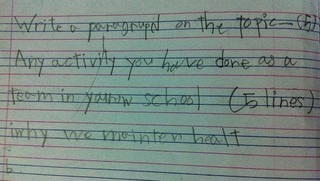 Write a paragraph on the topic – (5)
Any activity you have done as a
team in school (5 lines)
why we mainten healt